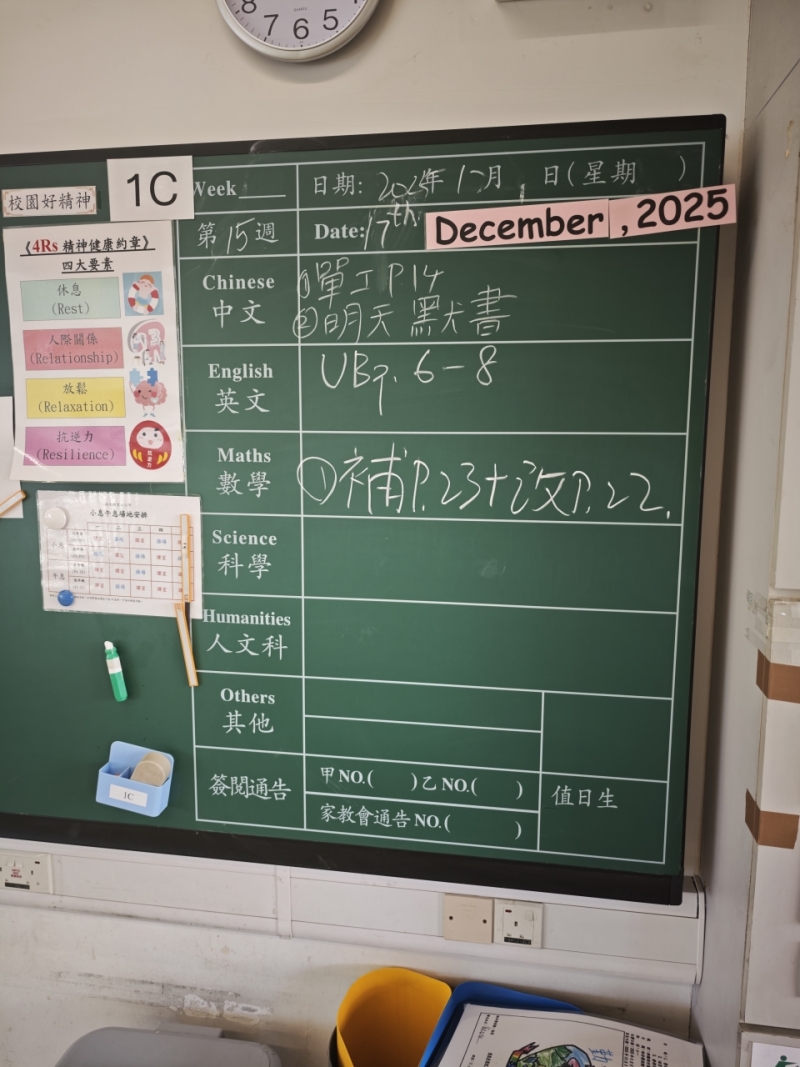 8 7 6 5
QUARTZ
校園好精神
1C
Week
日期: 2025年12月 日(星期 )
第15週
Date: 17th December , 2025
《4Rs 精神健康約章》
四大要素
休息
(Rest)
人際關係
(Relationship)
放鬆
(Relaxation)
抗逆力
(Resilience)
小息午息場地安排
小息
午息
1C
Chinese
中文
①單工P.14
②明天默書
English
英文
UBp. 6-8
Maths
數學
①補P.23+改P.22.
Science
科學
Humanities
人文科
Others
其他
簽閱通告
甲NO.( )乙NO.( )
家教會通告NO.( )
值日生